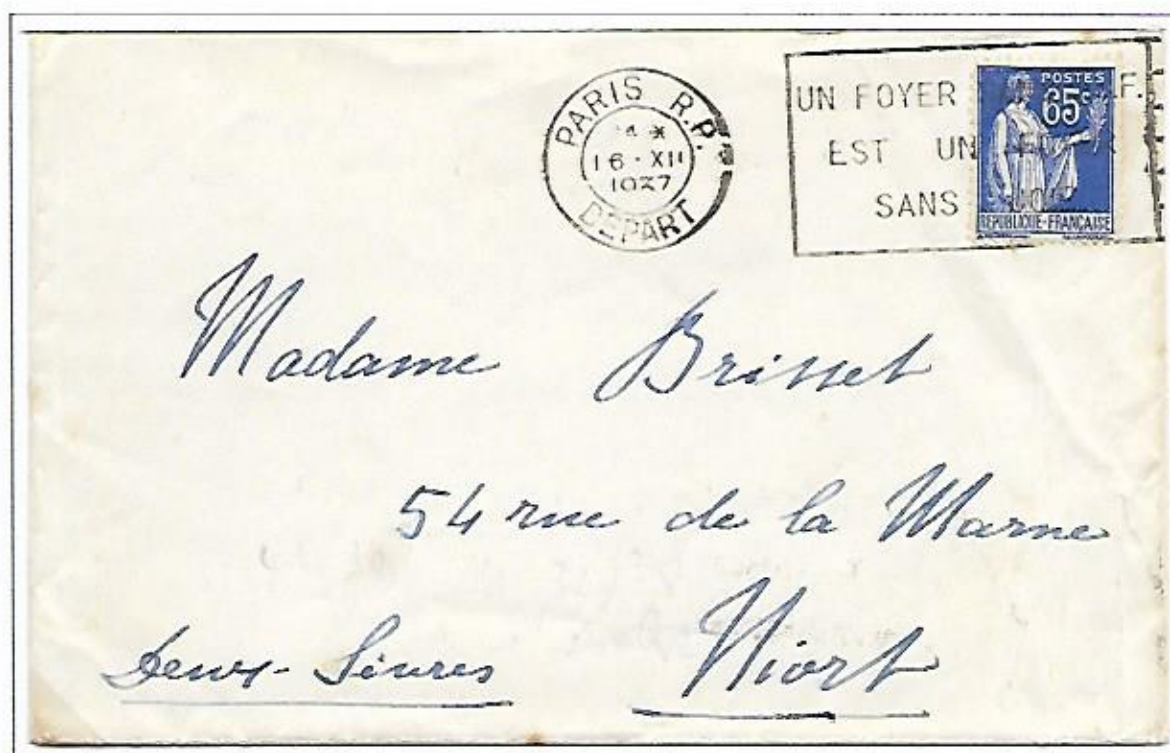 PARIS R.P.
16 · XII
1937
DEPART
UN FOYER
EST UN
SANS
POSTES
65c
REPUBLIQUE-FRANÇAISE
Madame Brisset
54 rue de la Marne
Niort
Deux-Sèvres